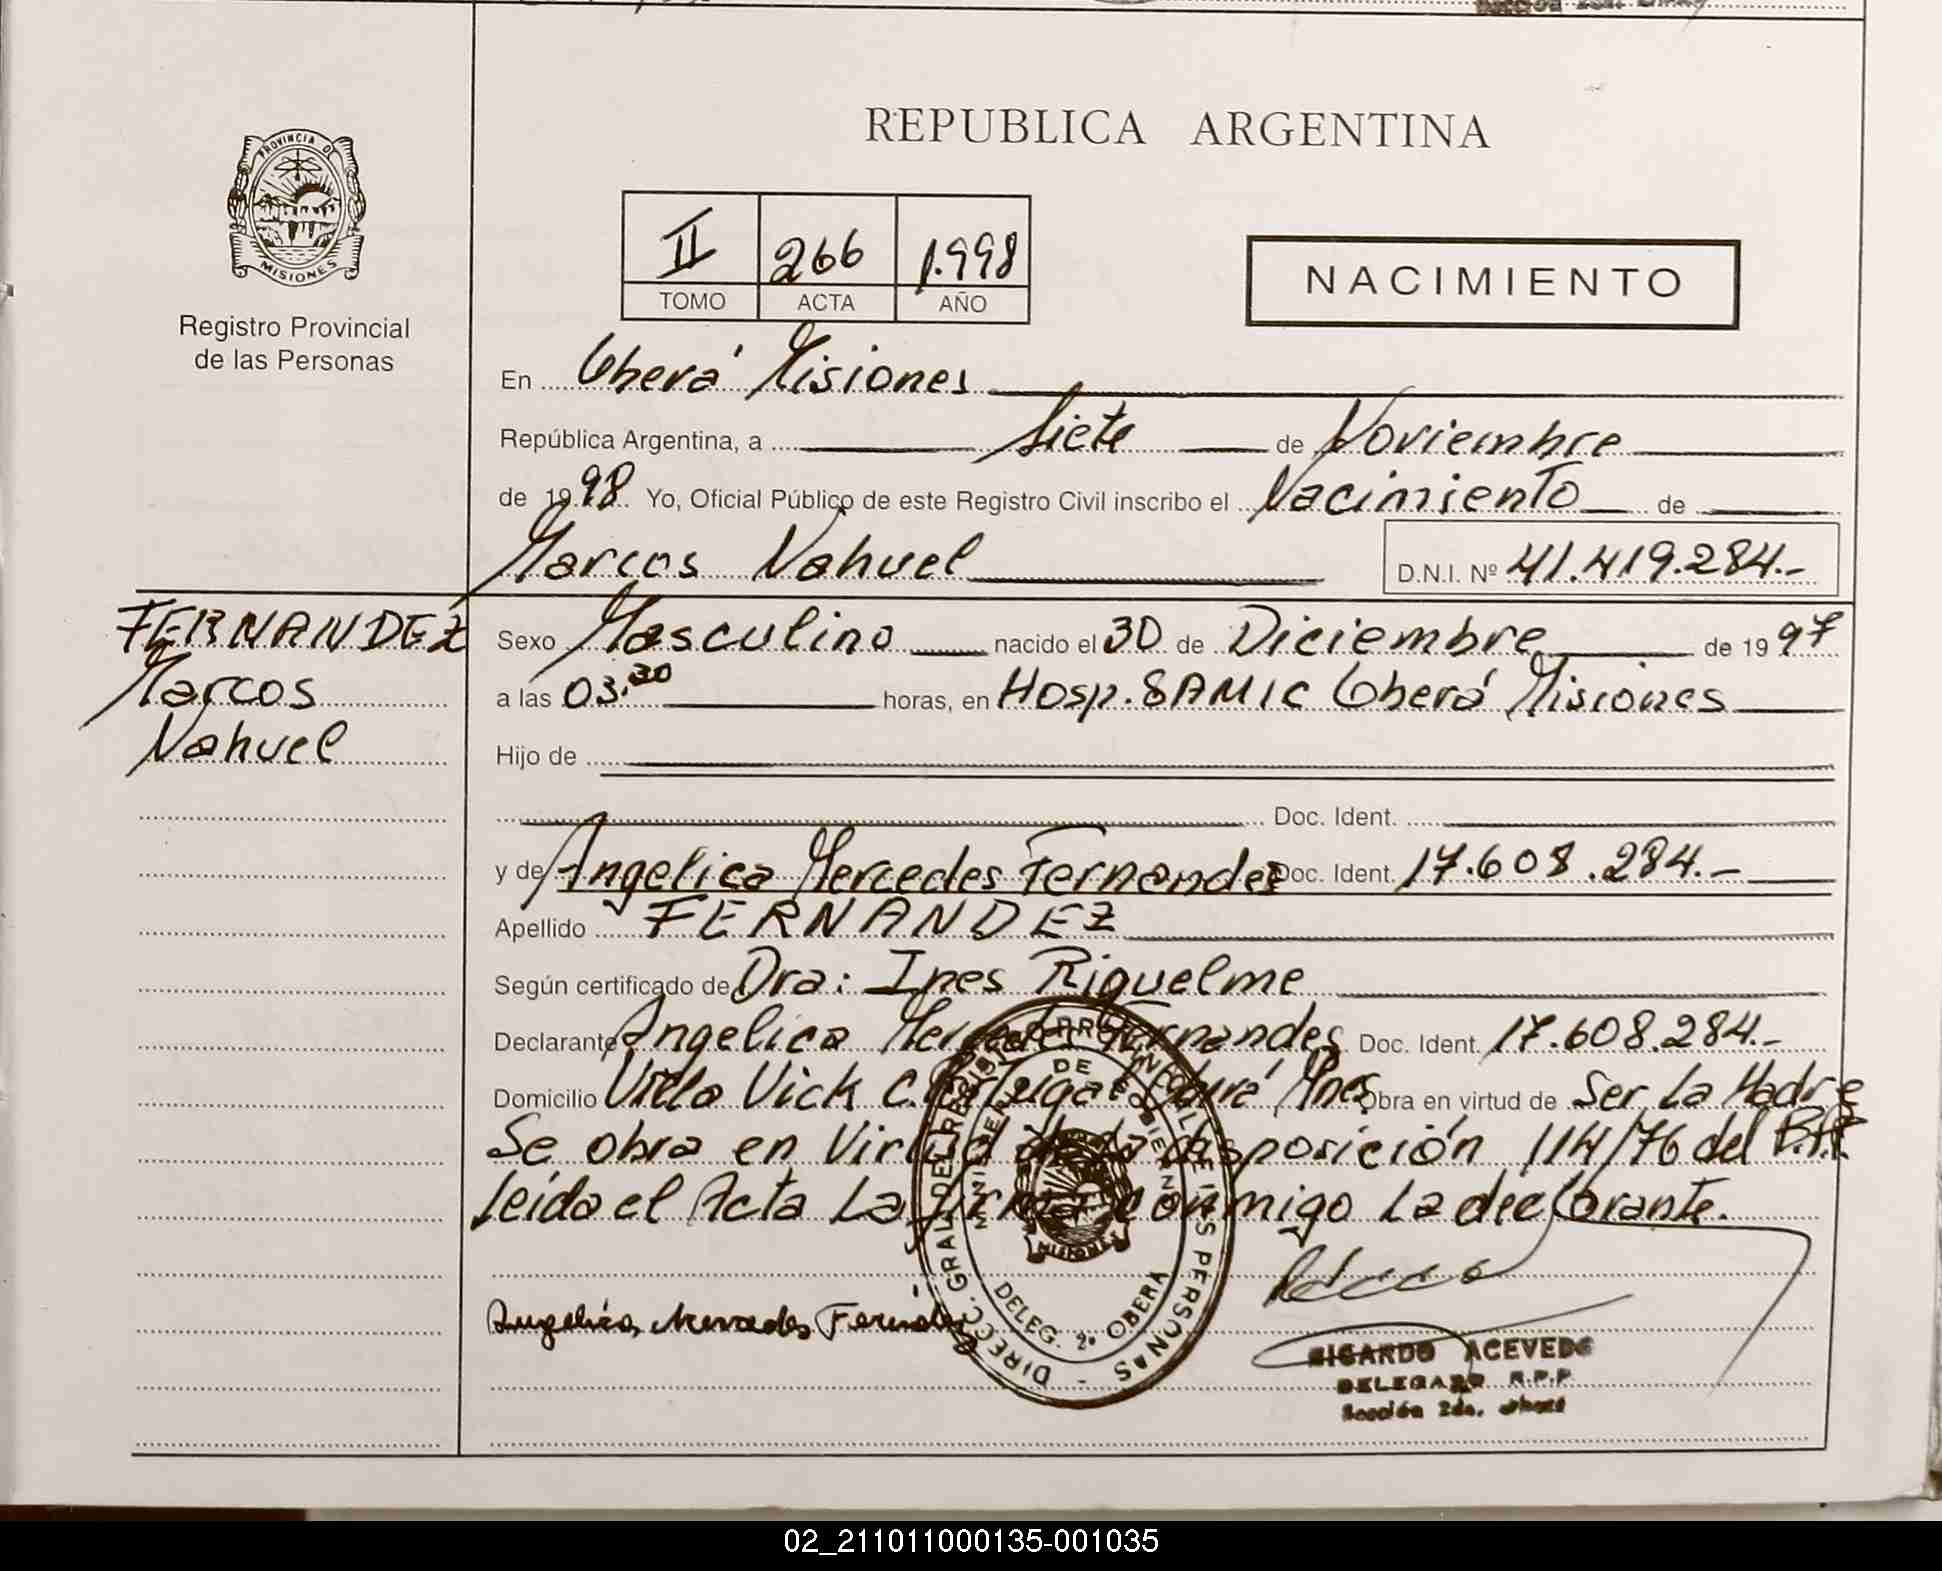 REPUBLICA ARGENTINA
PROVINCIA DE
MISIONES
Registro Provincial
de las Personas
II 266 1.998
TOMO ACTA AÑO
NACIMIENTO
En Oberá Misiones
República Argentina, a Siete de Noviembre
de 1998 Yo, Oficial Público de este Registro Civil inscribo el Nacimiento de
Marcos Nahuel D.N.I. Nº 41.419.284.-
FERNANDEZ
Marcos
Nahuel
Sexo Masculino nacido el 30 de Diciembre de 1997
a las 03.30 horas, en Hosp. SAMIC Oberá Misiones
Hijo de
Doc. Ident.
y de Angelica Mercedes Fernandez Doc. Ident. 17.608.284.-
Apellido FERNANDEZ
Según certificado de Dra: Ines Riquelme
Declarante Angelica Mercedes Fernandes Doc. Ident. 17.608.284.-
Domicilio Villa Vick C. Portugal Oberá Mnes Obra en virtud de Ser La Madre
Se obra en Virtud de la disposición 114/76 del
Leida el Acta La firma conmigo La declarante.
Angelica Mercedes Fernandez
DIRECC. GRAL. DEL REGISTRO PROVINCIAL DE LAS PERSONAS
MINISTERIO DE GOBIERNO
MISIONES
DELEG. 2ª OBERA
RICARDO ACEVEDO
DELEGADO R.P.P
Sección 2da. Oberá
02_211011000135-001035